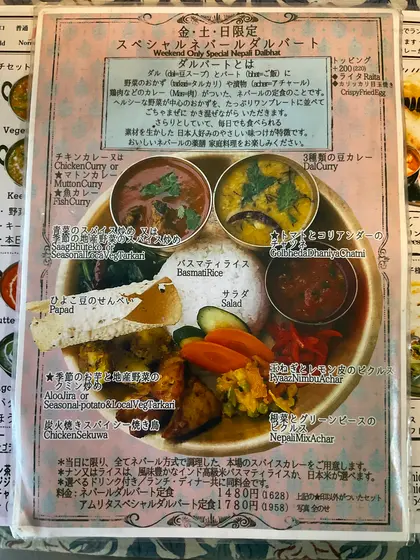 金・土・日限定
スペシャルネパールダルバート
Weekend Only Special Nepali Dalbhat
ダルバートとは
ダル(dal=豆スープ)とバート(bhat=ご飯)に
野菜のおかず(tarkari=タルカリ)や漬物(achar=アチャール)
鶏肉などのカレー(Masu=肉)がついた、ネパールの定食のことです。
ヘルシーな野菜が中心のおかずを、たっぷりワンプレートに並べて
ごちゃまぜに かき混ぜながら いただきます。
さらりとしていて、毎日でも食べられる
素材を生かした 日本人好みのやさしい味つけが特徴です。
おいしいネパールの薬膳 家庭料理をお楽しみください。
トッピング
+200(220)
◆ライタRaita
◆カリッカリ目玉焼き
CrispyFriedEgg
チキンカレー又は
ChickenCurry or
★マトンカレー
MuttonCurry
★魚カレー
FishCurry
3種類の豆カレー
DalCurry
青菜のスパイス炒め 又は
季節の地産野菜のスパイス炒め
SaagBhuteko or
SeasonalLocalVegTarkari
★トマトとコリアンダーの
チャツネ
GolbhedaDhaniyaChatni
バスマティライス
BasmatiRice
ひよこ豆のせんべい
Papad
サラダ
Salad
★季節のお芋と地産野菜の
クミン炒め
AlooJira or
Seasonal-potato&LocalVegTarkari
玉ねぎとレモン皮のピクルス
PyazNimbuAchar
炭火焼きスパイシー焼き鳥
ChickenSekuwa
根菜とグリーンピースの
ピクルス
NepaliMixAchar
*当日に限り、全てネパール方式で調理した、本場のスパイスカレーをご用意します。
*ナン又はライスは、風味豊かなインド高級米バスマティライスか、日本米が選べます。
*選べるドリンク付き/ランチ・ディナー共に同料金です。
料金:ネパールダルバート定食 1480円(1628) 上記の★印以外がついたセット
アムリタスペシャルダルバート定食 1780円(1958) 写真 全のせ